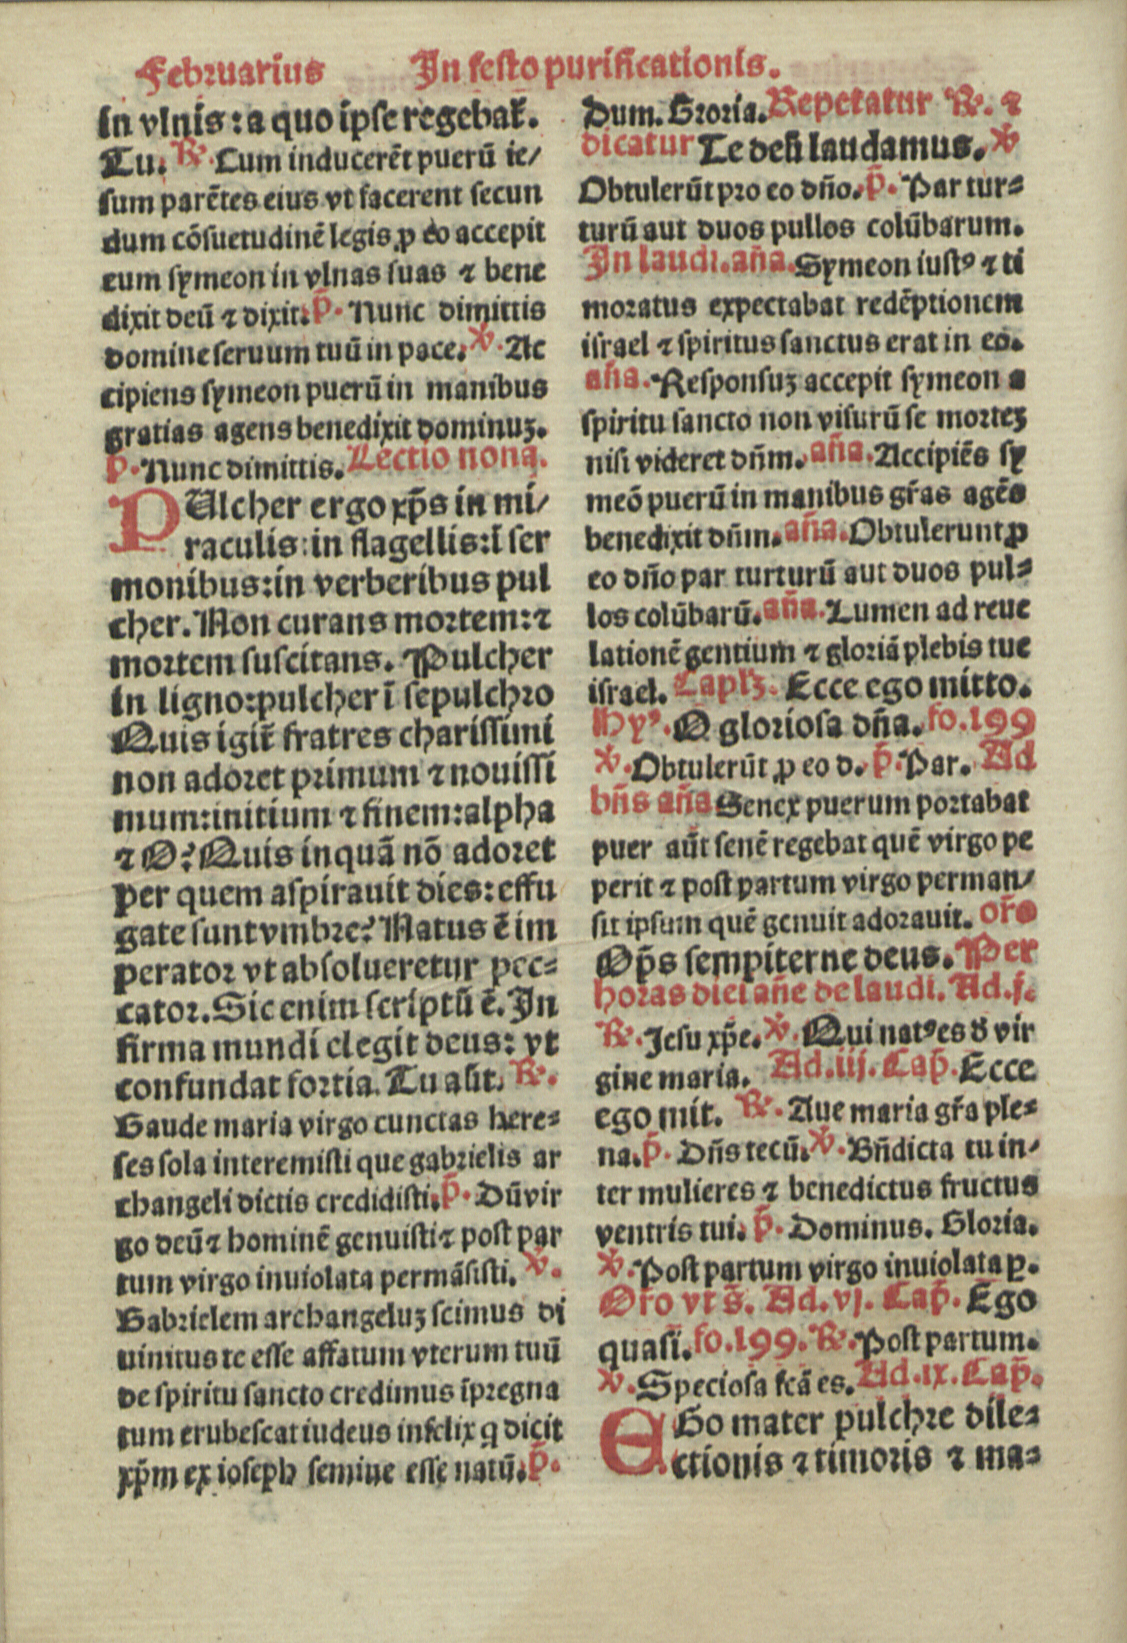 Februarius In festo purificationis.
in vlnis: a quo ipse regebat̄.
Tu. ℟. Cum inducerēt puerū ie/
sum parētes eius vt facerent secun
dum cōsuetudinē legis ꝓ eo accepit
eum symeon in vlnas suas ⁊ bene
dixit deū ⁊ dixit: p̄. Nunc dimittis
domine seruum tuū in pace. ℣. Ac
cipiens symeon puerū in manibus
gratias agens benedixit dominuꝫ.
p̄. Nunc dimittis. Lectio nona.
PUlcher ergo xp̄s in mi/
raculis: in flagellis: ī ser
monibus: in verberibus pul
cher. Non curans mortem: ⁊
mortem suscitans. Pulcher
in ligno: pulcher ī sepulchro
Quis igit̄ fratres charissimi
non adoret primum ⁊ nouissi
mum: initium ⁊ finem: alpha
⁊ O? Quis inquā nō adoret
per quem aspirauit dies: effu
gate sunt vmbre? Natus ē im
perator vt absolueretur pec⸗
cator. Sic enim scriptū ē. In
firma mundi elegit deus: vt
confundat fortia. Tu aūt. ℟.
Gaude maria virgo cunctas here⸗
ses sola interemisti que gabrielis ar
changeli dictis credidisti. p̄. Dū vir
go deū ⁊ hominē genuisti ⁊ post par
tum virgo inuiolata permāsisti. ℣.
Gabrielem archangeluꝫ scimus di
uinitus te esse affatum vterum tuū
de spiritu sancto credimus īpregna
tum erubescat iudeus infelix q dicit
xp̄m ex ioseph semine esse natū. p̄.
Dum. Groria. Repetatur ℟. ⁊
dicatur Te deū laudamus. ℣
Obtulerūt pro eo dn̄o. p̄. Par tur⸗
turū aut duos pullos colūbarum.
In laudi. an̄a. Symeon iustꝰ ⁊ ti
moratus expectabat redēptionem
israel ⁊ spiritus sanctus erat in eo.
an̄a. Responsuꝫ accepit symeon a
spiritu sancto non visurū se morteꝫ
nisi videret dn̄m. an̄a. Accipiēs sy
meō puerū in manibus gr̄as agēs
benedixit dn̄m. an̄a. Obtulerunt ꝓ
eo dn̄o par turturū aut duos pul⸗
los colūbarū. an̄a. Lumen ad reue
lationē gentium ⁊ gloriā plebis tue
israel. Caplꝫ. Ecce ego mitto.
Hyꝰ. O gloriosa dn̄a. fo.199
℣. Obtulerūt ꝓ eo d. p̄. Par. Ad
bn̄s an̄a Senex puerum portabat
puer aūt senē regebat quē virgo pe
perit ⁊ post partum virgo perman/
sit ipsum quē genuit adorauit. or̄o
Op̄s sempiterne deus. Per
horas diei an̄e de laudi. Ad.j.
℟. Jesu xp̄e. ℣. Qui natꝰ es d̄ vir
gine maria. Ad.iij. Cap̄. Ecce
ego mit. ℟. Aue maria gr̄a ple⸗
na. p̄. Dn̄s tecū. ℣. Bn̄dicta tu in⸗
ter mulieres ⁊ benedictus fructus
ventris tui. p̄. Dominus. Gloria.
℣. Post partum virgo inuiolata p.
Or̄o vt s̄. Ad.vj. Cap̄. Ego
quasi. fo.199. ℟. Post partum.
℣. Speciosa fcā es. Ad.ix. Cap̄.
EGo mater pulchre dile⸗
ctionis ⁊ timoris ⁊ ma⸗